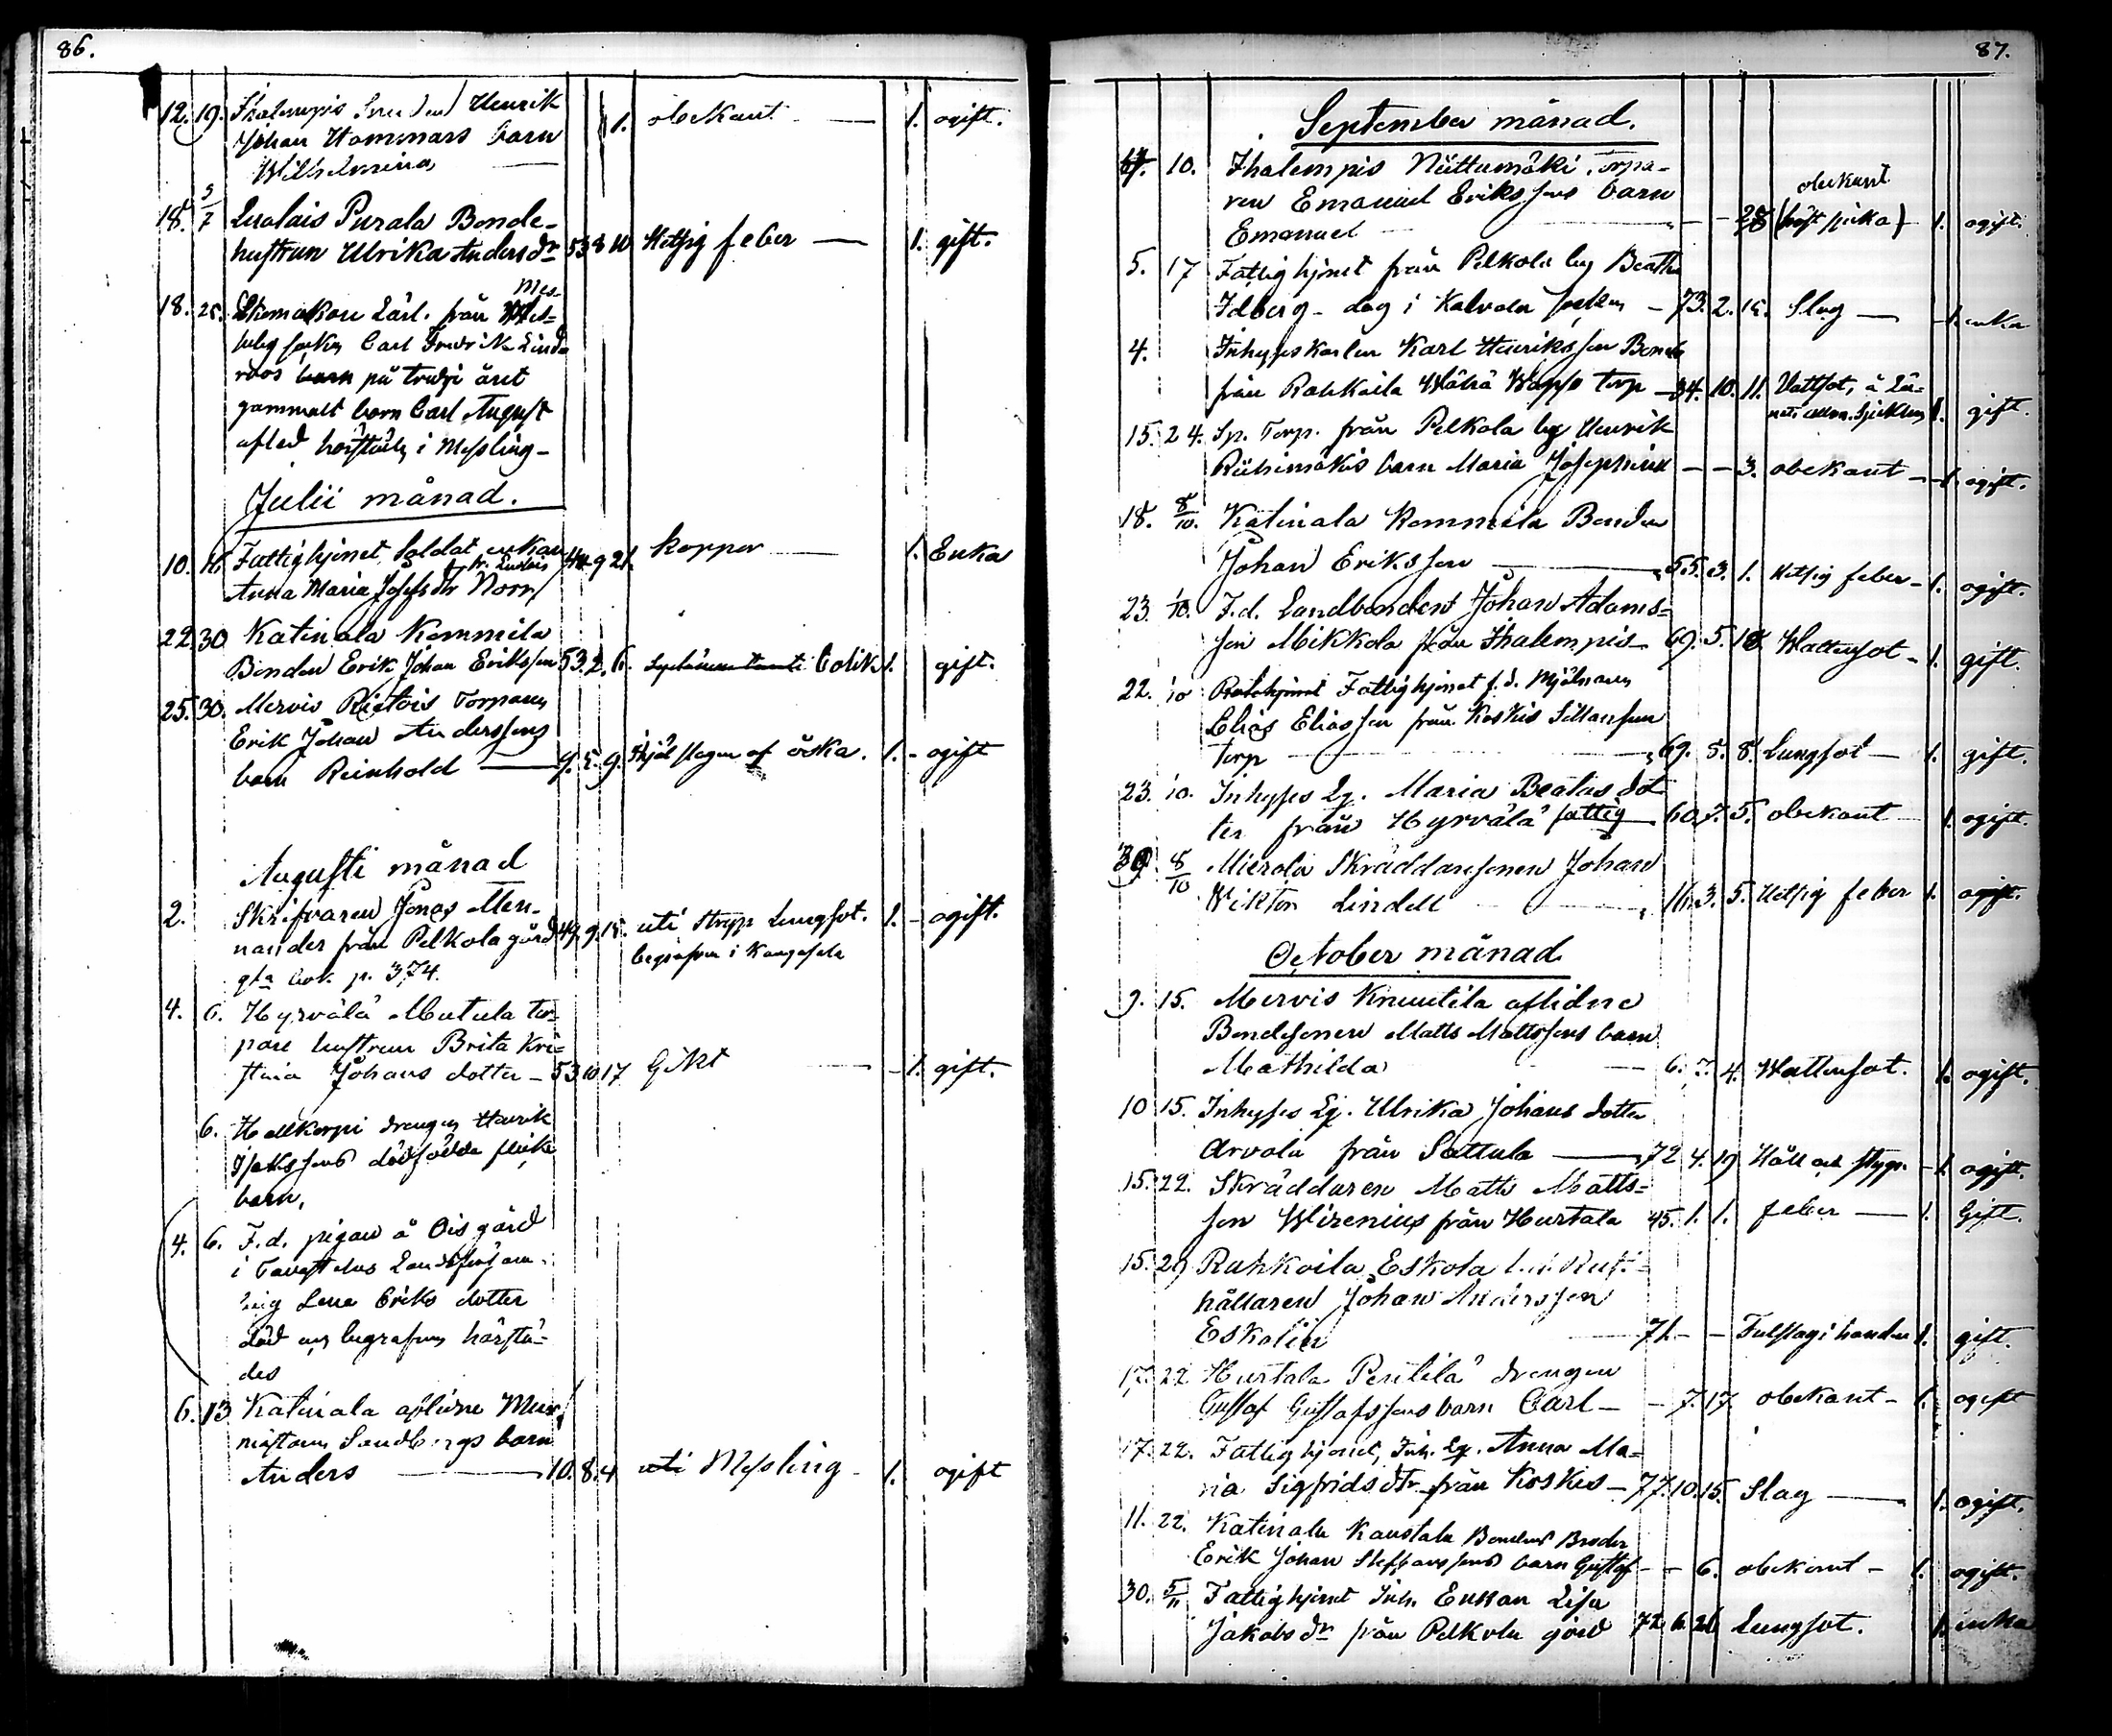 86.
12. 19. Ihalempis Henrik
Johan Hammars barn
Wilhelmina 1. obekant 1. ogift.
18. 5/7 Lualais Purala Bonde-
hustrun Ulrika Anders dr 53 8 10 Hetsig feber 1. gift.
Mes-
18. 25. Skomakare Lärl. från
suby sokn Carl Fredrik Lind-
roos barn på tredje året
gammalt barn Carl August
afled härstädes i Messling
Julii månad.
10. 16. Fattighjonet Soldat enkan
fr. Lualais
Anna Maria Josefs dr Norr 44 9 21. koppor 1. Enka
22. 30 Katinala Kommila
Bonden Erik Johan Eriksson 53. 2. 6. Colik 1. gift.
25. 30. Mervis Rietois Torparen
Erik Johan Anderssons
barn Reinhold 9. 5. 9. Ihjäl slagen af åska. 1. ogift
Augusti månad
2. Skrifvaren Jonas Men-
nander från Pelkola gård 49. 9. 15. uti Strypp Lungsot. 1. ogift.
gla bok p. 374. begrafven i Kangasala
4. 6. Hyrvälä Mutula tor-
pare hustrun Brita Kri-
stina Johans dotter 53 10 17 Gikt 1. gift.
6. Hellkorpi drengen Henrik
Isakssons dödfödda flicke
barn.
4. 6. F.d. pigan å Ois gård
i Tavastehus Landsförsam-
ling Lena Eriks dotter
död och begrafven härstä-
des
6. 13 Katinala aflidne Mur-
mästaren Sandbergs barn
Anders 10. 8. 4 uti Messling 1. ogift
87.
September månad.
4. 10. Ihalempis Niittumäki Torpa-
ren Emanuel Erikssons barn obekant
Emanuel 28 1. ogift.
5. 17 Fattighjonet från Pelkola by Beatha
Idberg dog i Kalvola sokn 73. 2. 15. Slag 1. enka
4. Inhyseskarlen Karl Henriksson Bonde
från Rahkoila Wähä Wappo torp 34. 10. 11. Vattsot, å Lä-
nett allm. Sjukhus 1. gift.
15. 24. Sp. Torp. från Pelkola by Henrik
Riihimäkis barn Maria Josephina 3. obekant 1. ogift.
18. 8/10. Katinala Kommila Bonden
Johan Eriksson 55. 3. 1. Hetsig feber 1. ogift.
23. 1/10. F.d. Landbonden Johan Adams-
son Mikkola från Ihalempis 69. 5. 16 Wattensot 1. gift.
22. 1/10 Fattighjonet f.d. Mjölnaren
Elias Eliasson från Koskis Sillansuu
torp 69. 5. 8. Lungsot 1. gift.
23. 1/10. Inhyses Eg. Maria Beatas dot
ter från Hyrvälä fattig 60. 7. 5. obekant 1. ogift.
30 8/10 Mierola Skräddaresonen Johan
Wiktor Lindell 16. 3. 5. Hetsig feber 1. ogift.
October månad
9. 15. Mervis Knuutila aflidne
Bondesonen Matts Mattssons barn
Mathilda 6. 7. 4. Wattensot. 1. ogift.
10 15. Inhyses Eg. Ulrika Johans dotter
Arvola från Sattula 72 4. 19 Håll och styng 1. ogift.
15. 22. Skräddaren Matts Matts-
son Wirenius från Hurtala 45. 1. 1. feber 1. Gift.
15. 29 Rahkoila Eskola
hållaren Johan Andersson
Eskolin 71. Fulslag i handen 1. gift.
17. 22 Hurtala Penttilä drengen
Gustaf Gustafssons barn Carl 7. 17. obekant 1. ogift
17. 22. Fattighjonet, Inh. Eg. Anna Ma-
ria Sigfrids dtr från Koskis 77. 10. 15. Slag 1. ogift.
11. 22. Katinala Kaustala Bondens Broder
Erik Johan Steffanssons barn Gustaf 6. obekant 1. ogift.
30. 5/11 Fattighjonet Inh. Enkan Lisa
Jakobs dr från Pelkola gård 72 6. 26 Lungsot. 1. enka